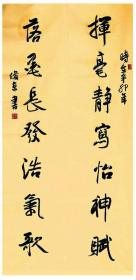 揮毫靜寫怡神賦
落墨長發浩氣歌
時在辛卯年
俊臣書